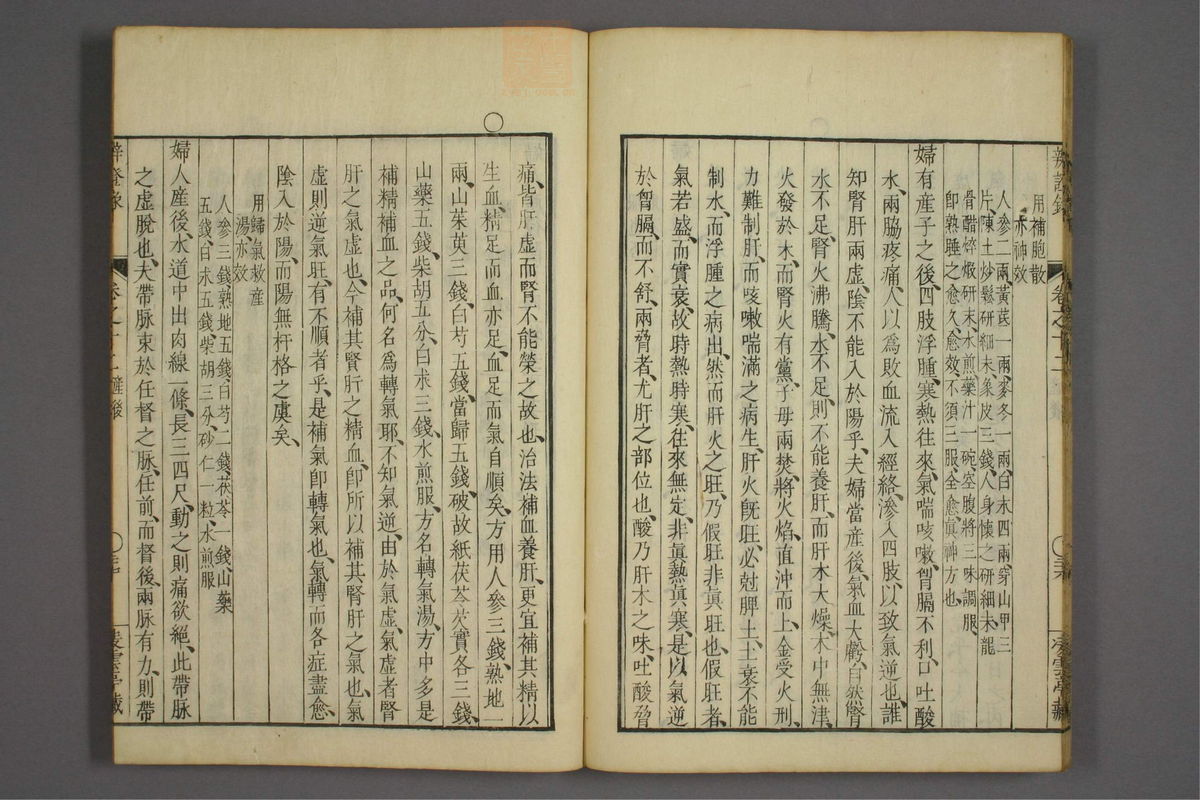 辨證錄 卷之十二 凌雲亭藏
用補胞散
亦神效
人參二兩、黃茋一兩、麥冬一兩、白朮四兩、穿山甲三
片、陳土炒鬆研細末、象皮三錢、人身懷之研細末、龍
骨醋焠煅研末、水煎藥汁一碗、空腹將三味調服、
卽熟睡之、愈久、愈效、不須三服、全愈、眞神方也、
婦有產子之後、四肢浮腫、寒熱往來、氣喘咳嗽、胷膈不利、口吐酸
水、兩脇疼痛、人以爲敗血流入經絡、滲入四肢、以致氣逆也、誰
知腎肝兩虛、陰不能入於陽乎、夫婦當產後、氣血大虧、自然腎
水不足、腎火沸騰、水不足、則不能養肝、而肝木大燥、木中無津、
火發於木、而腎火有黨、子母兩焚、將火焰直沖而上、金受火刑、
力難制肝、而咳嗽喘滿之病生、肝火旣旺、必尅脾土、土衰不能
制水、而浮腫之病出、然而肝火之旺、乃假旺非眞旺也、假旺者、
氣若盛、而實衰、故時熱時寒、往來無定、非眞熱眞寒、是以氣逆
於胷膈、而不舒、兩脅者、尤肝之部位也、酸乃肝木之味、吐酸脅
痛、皆肝虛而腎不能榮之故也、治法補血養肝、更宜補其精以
生血、精足而血亦足、血足而氣自順矣、方用人參三錢、熟地一
兩、山茱萸三錢、白芍五錢、當歸五錢、破故紙茯苓芡實各三錢、
山藥五錢、柴胡五分、白朮三錢、水煎服、方名轉氣湯、方中多是
補精補血之品、何名爲轉氣耶、不知氣逆、由於氣虛、氣虛者腎
肝之氣虛也、今補其腎肝之精血、卽所以補其腎肝之氣也、氣
虛則逆氣旺、有不順者乎、是補氣卽轉氣也、氣轉而各症盡愈、
陰入於陽、而陽無扞格之虞矣、
用歸氣救產
湯、亦效
人參三錢、熟地五錢、白芍二錢、茯苓一錢、山藥
五錢、白朮五錢、柴胡三分、砂仁一粒、水煎服
婦人產後、水道中出肉線一條、長三四尺、動之則痛欲絕、此帶脉
之虛脫也、夫帶脉束於任督之脉、任前、而督後、兩脉有力、則帶
辨證錄 卷之十二 產後 凌雲亭藏